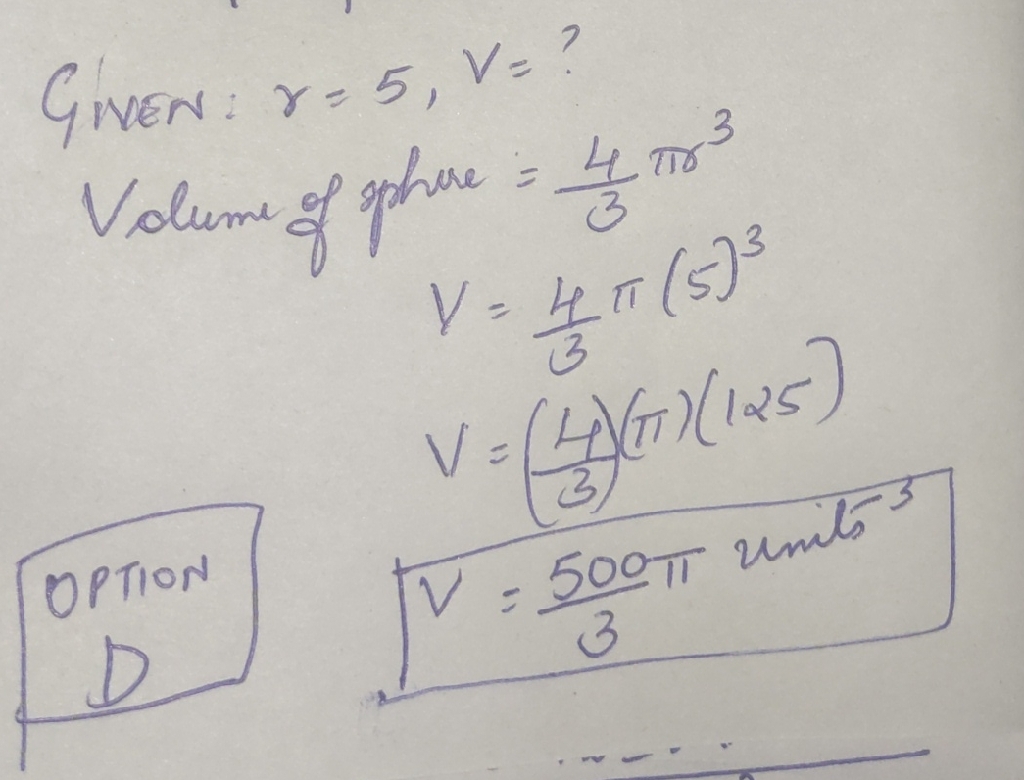 GIVEN: r = 5, V = ?
Volume of sphere = 4/3 πr³
V = 4/3 π (5)³
V = (4/3)(π)(125)
V = 500/3 π units³
OPTION
D